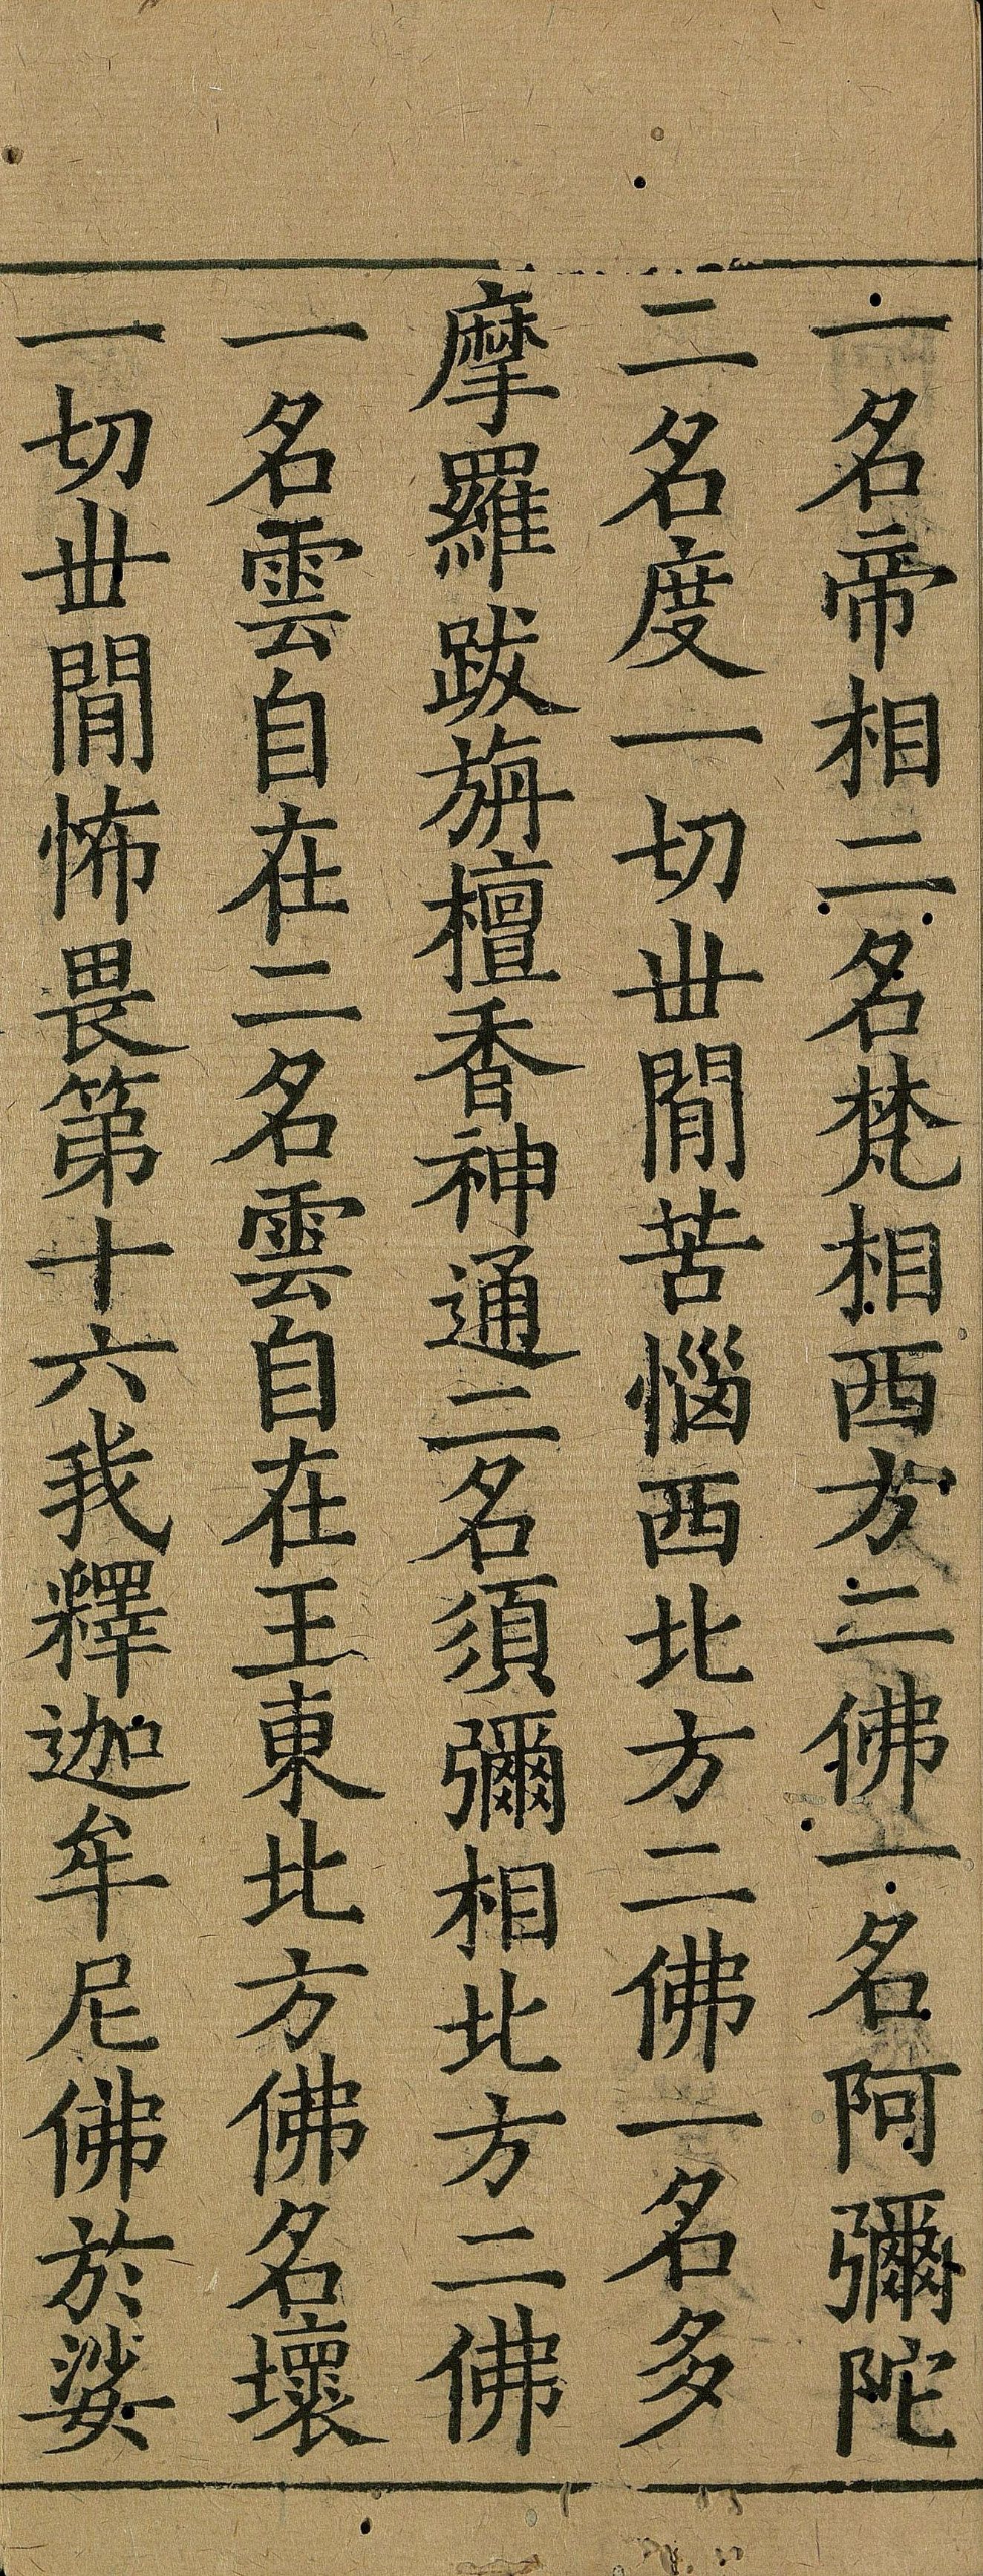 一名帝相二名梵相西方二佛一名阿彌陁
二名度一切丗閒苦惱西北方二佛一名多
摩羅跋旃檀香神通二名須彌相北方二佛
一名雲自在二名雲自在王東北方佛名壞
一切丗閒怖畏第十六我釋迦牟尼佛於娑